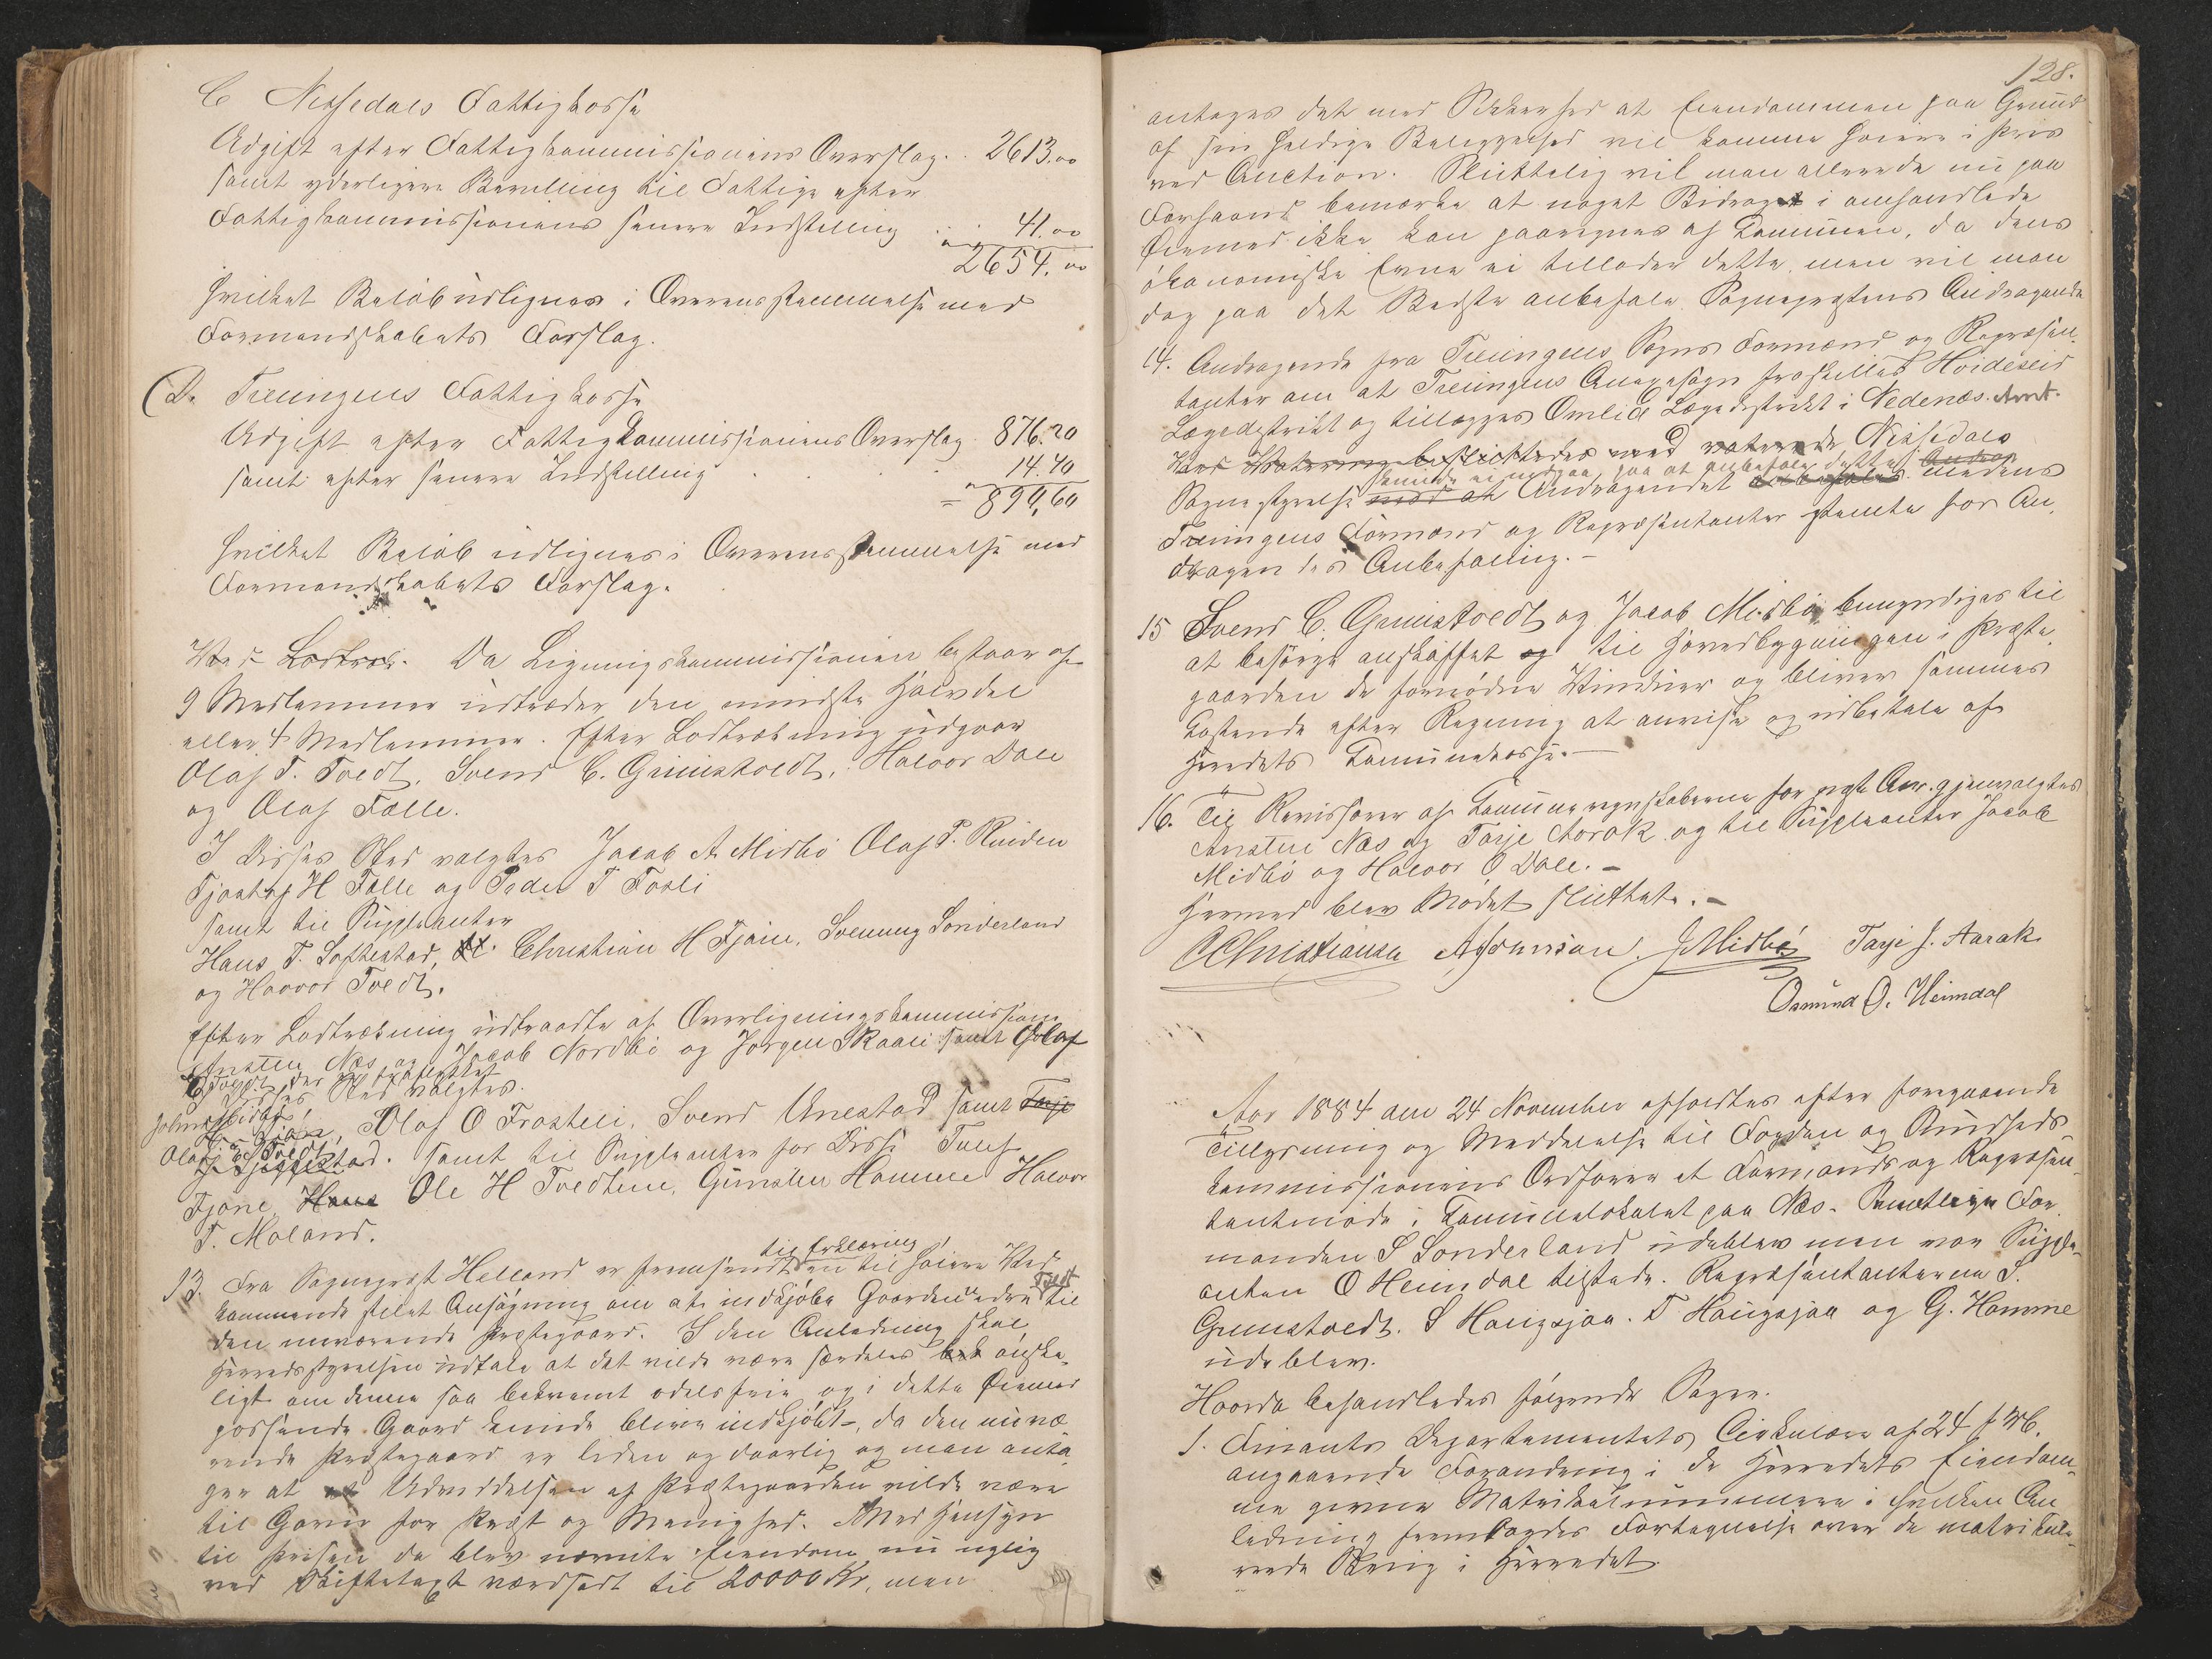 C Nissedals Fattigkasse
Udgift efter Fattigkommissionens Overslag . . 2613.00
samt yderligere Bevilling til Fattige efter
Fattigkommissionens senere Indstilling . . 41.00
2654.00
hvilket Beløb udlignes i Overensstemmelse med
Formandskabets Forslag.
D. Treungens Fattigkasse
Udgift efter Fattigkommissionens Overslag 876.20
samt efter senere Indstilling . 14.40
= 890,60
hvilket Beløb udlignes i Overensstemmelse med
Formandskabets Forslag.
Ved Lodtræk. Da Ligningskommissionen bestaar af
9 Medlemmer udtræder den mindste Halvdel
eller 4 Medlemmer. Efter Lodtrækning udgaar
Olaf T. Tvedt, Svend C. Grimstvedt, Halvor Dale
og Olaf Fælle.
I Disses Sted valgtes Jacob A. Midbö Olaf P. Ruiden
Tjostolf H Fælle og Peder T Fosli
samt til Suppleanter
Hans T. Loftestad, Christian H Fjone, Svenung Sönderland
og Havvor Tvedt.
Efter Lodtrækning udtraadte af Overligningskommissionen
Ansteen Næs og Jacob Nordbö og Jörgen Skaali samt Olaf
Tvedt der var fraflyttet
I Disses Sted valgtes.
John Midbö, Olaf O Frosteli, Svend Unestad samt Tarje
Olaf C Tvedt. samt til Suppleanter for Disse Tallef
Fjone, Hans Ole H Tvedtene, Gunsten Homme Halvor
T. Moland.
13. Fra Sogneprest Helland er fremsendt til Erklæring en til höiere Ved
kommende stilet Ansögning om at indkjöbe Gaarden nedre Tvedt til
den nuværende Præstegaard. I den Anledning skal
Herredsstyrelsen udtale at det vilde være særdeles önske
ligt om denne saa bekvemt odelsfrie og i dette Öiemed
passende Gaard kunde blive indkjöbt, da den nuvæ
rende Præstegaard er liden og daarlig og man anta
ger at Udviddelsen af Præstegaarden vilde være
til Gavn for Præst og Menighed. Med Hensyn
til Prisen da blev nævnte Eiendom nu nylig
ved Skiftetaxt værdsat til 20000 Kr, men
128.
antages det med Sikkerhed at Eiendommen paa Grund
af sin heldige Beliggenhed vil komme höiere i Pris
ved Auction. Sluttelig vil man allerede nu paa
Forhaand bemærke at noget Bidrag i omhandlede
Öiemed ikke kan paaregnes af Kommunen, da dens
ökonomiske Evne ei tillader dette, men vil man
dog paa det Bedste anbefale Sogneprestens Andragende
14. Andragende fra Treungens Sogns Formænd og Repræsen
tanter om at Treungens Annexsogn fraskilles Hvideseid
Lægedistrikt og tillægges Omlid Lægedistrikt i Nedenæs Amt.
Ved Votering besluttedes med Nissedals
kunde ei indgaa paa at anbefale dette
Sognestyrelse Andragendet medens
Treungens Formænd og Repræsentanter stemte for An
dragendes Anbefaling.-
15 Svend C. Grimstvedt og Jacob Midbö bemyndiges til
at besörge anskaffet og til Hovedbygningen i Præste
gaarden de fornødne Vinduer og bliver sammes
Kostende efter Regning at anvise og udbetale af
Herredets Kommunekasse.-
16. Til Revisorer af Kommuneregnskaberne for næste Aar gjenvalgtes
Ansteen Næs og Tarje Aarak og til Suppleanter Jacob
Midbö og Halvor O Dale.-
Hermed blev Mödet sluttet.-
Christiansen J Midbö Tarje J. Aarak
Osmund O. Heimdal
Aar 1884 den 24 November afholdtes efter foregaaende
Tillysning og Meddelelse til Fogden og Sundheds
kommissionens Ordförer et Formands og Repræsen
tantmöde i Kommunelokalet paa Næs. Samtlige For
manden S Sönderland udeblev men var Supple
anten O Heimdal tilstede. Repræsentanterne S.
Grimstvedt. S Haugsjaa. T Haugsjaa og G. Homme
udeblev.
Hvorda behandledes fölgende Sager.
1. Finants Departementets Cirkulære af 24 f M.
angaaende Forandring i de Herredets Eiendom
me givne Matrikulnummere i hvilken An
ledning fremlagdes Fortegnelse over de matrikule
rede Brug i Herredet